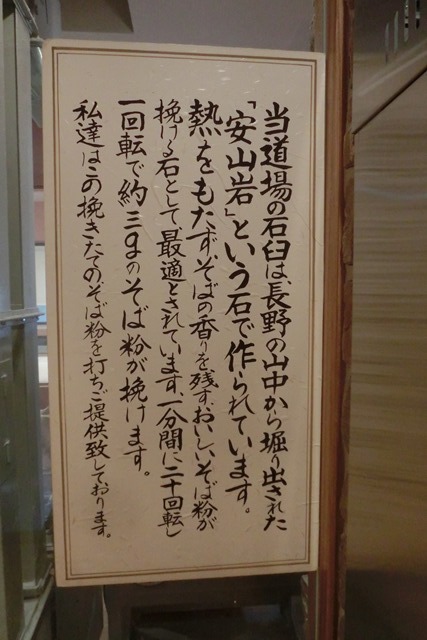 当道場の石臼は、長野の山中から堀り出された
「安山岩」という石で作られています。
熱をもたず、そばの香りを残す、おいしいそば粉が
挽ける石として最適とされています、一分間に二十回転し
一回転で約三gのそば粉が挽けます。
私達はこの挽きたてのそば粉を打ちご提供致しております。